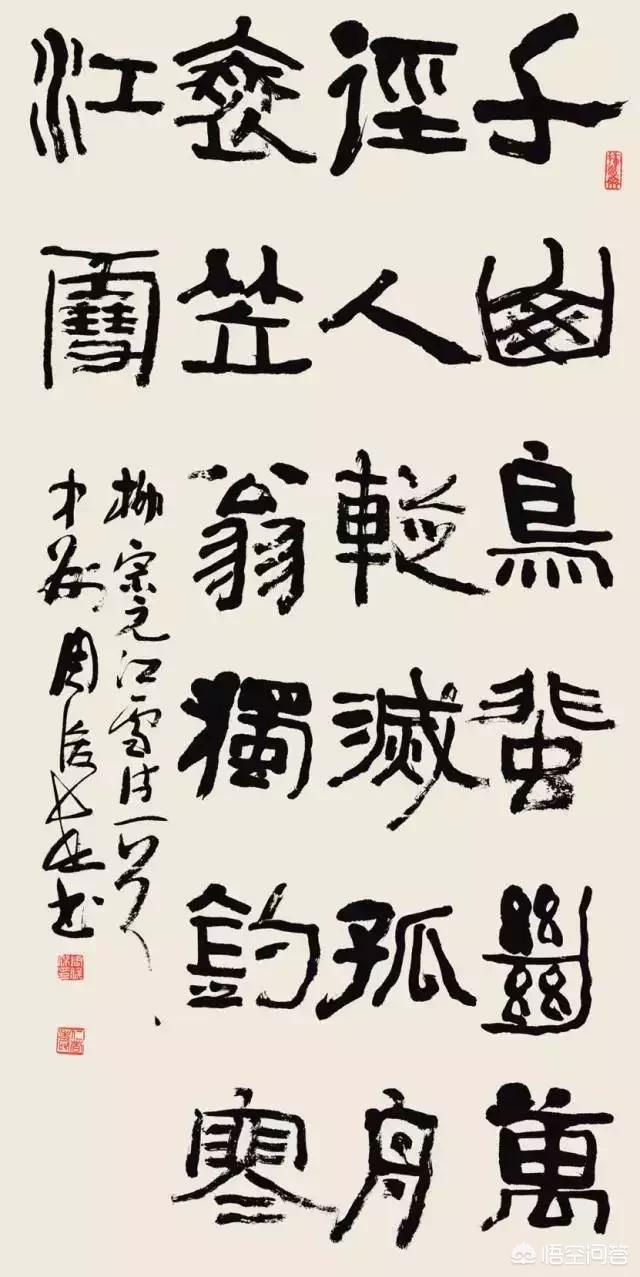 千山鳥蜚絕萬
徑人蹤滅孤舟
衰笠翁獨釣寒
江雪
柳宗元江雪诗一首
中州周俊杰书
悟空问答